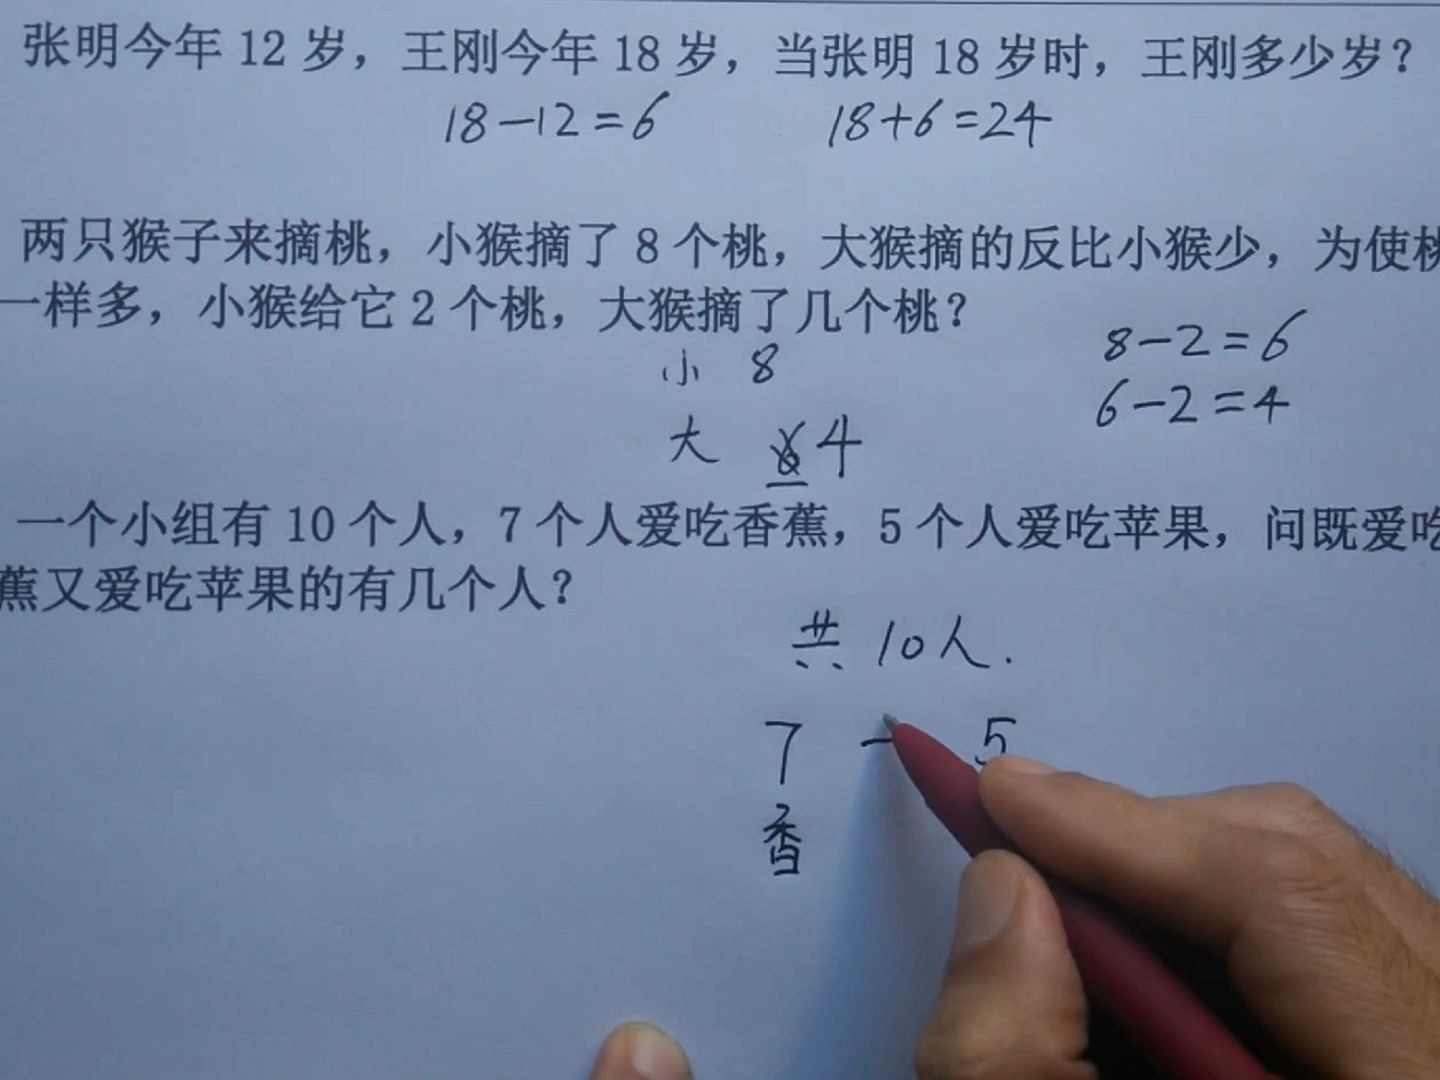 张明今年 12 岁，王刚今年 18 岁，当张明 18 岁时，王刚多少岁？
18-12=6 18+6=24
两只猴子来摘桃，小猴摘了 8 个桃，大猴摘的反比小猴少，为使桃
一样多，小猴给它 2 个桃，大猴摘了几个桃？
8-2=6
小 8
6-2=4
大 6 4
一个小组有 10 个人，7 个人爱吃香蕉，5 个人爱吃苹果，问既爱吃
蕉又爱吃苹果的有几个人？
共 10人.
7 5
香